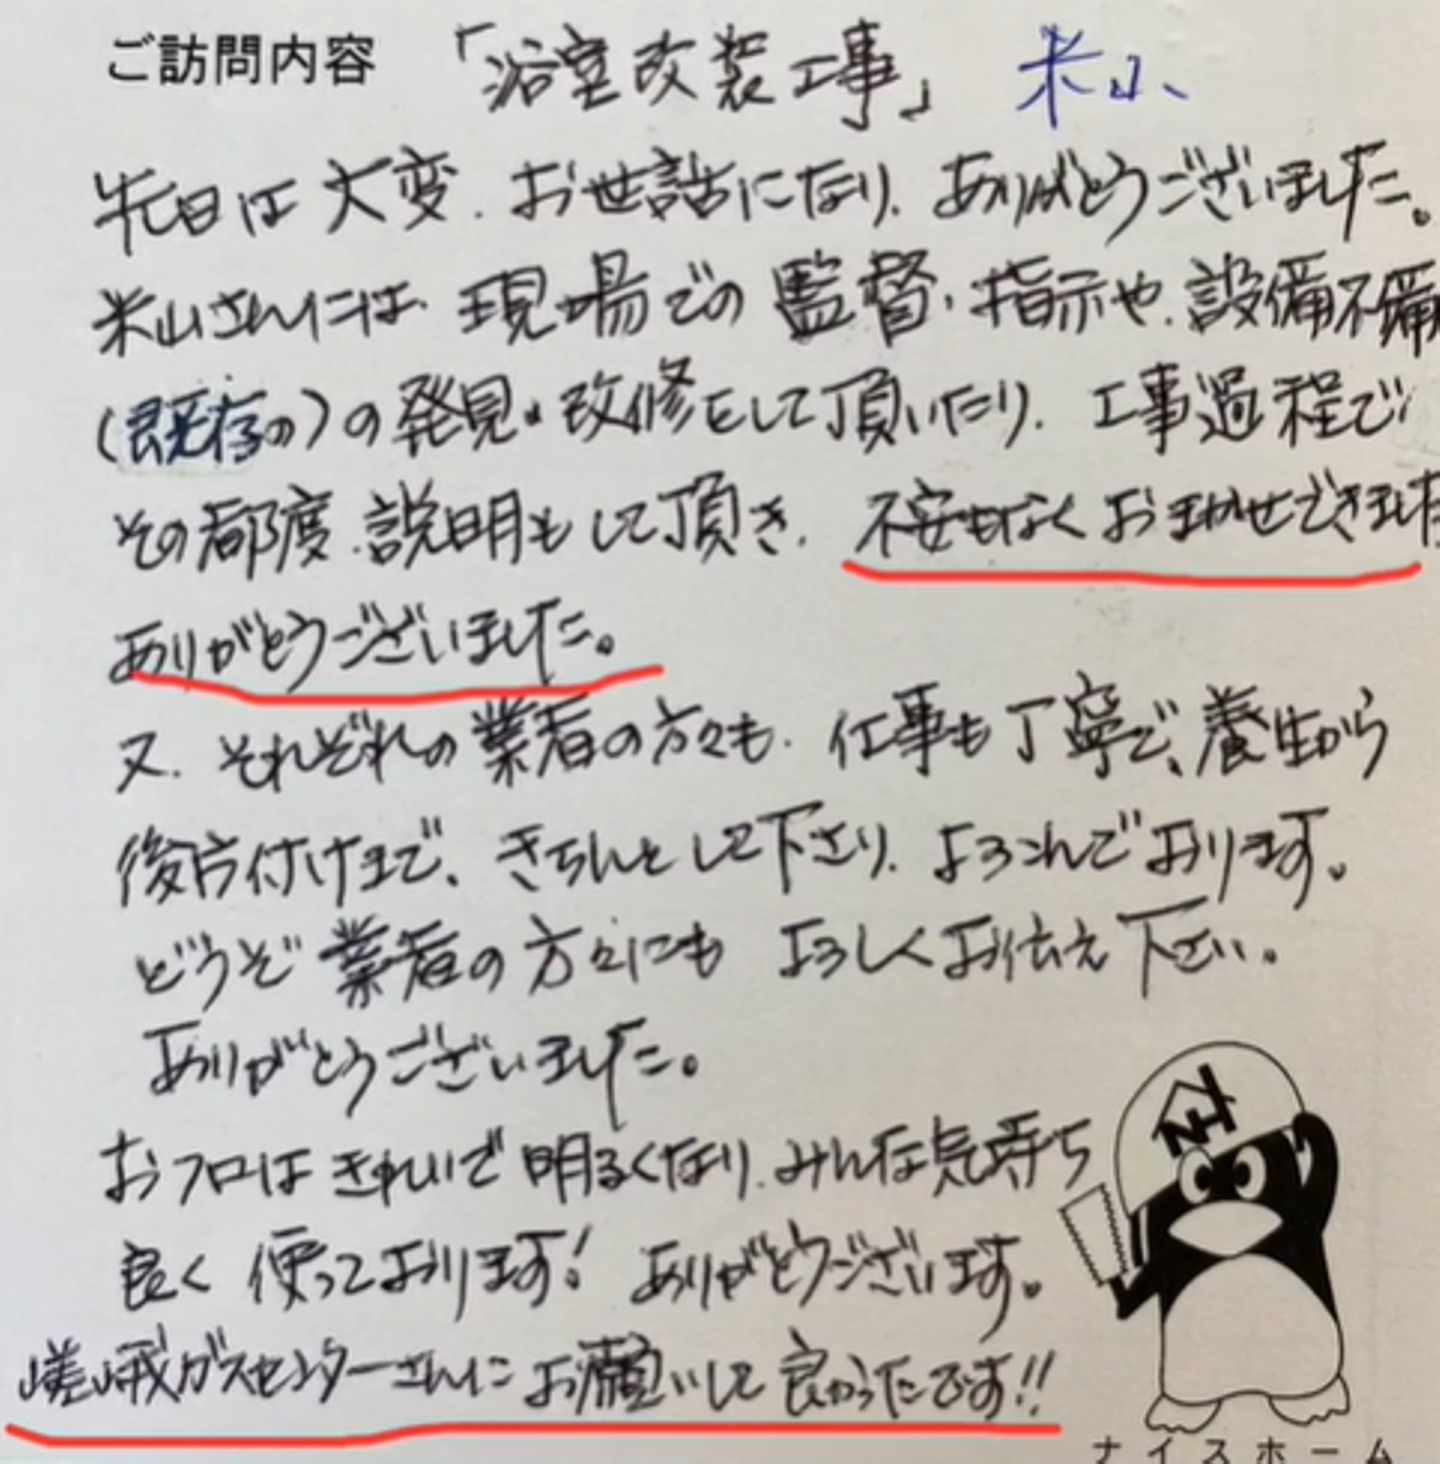 ご訪問内容 「浴室改装工事」 米山
先日は大変、お世話になり、ありがとうございました。
米山さんには、現場での監督、指示や、設備不備
(既存の)の発見、改修をして頂いたり、工事過程で
その都度、説明もして頂き、不安もなくおまかせできました
ありがとうございました。
又、それぞれの業者の方々も、仕事も丁寧で、養生から
後片付けまで、きちんとして下さり、よろこんでおります。
どうぞ業者の方々にもよろしくお伝え下さい。
ありがとうございました。
おフロはきれいで明るくなり、みんな気持ち
良く使っております! ありがとうございます。
嵯峨ガスセンターさんにお願いして良かったです!!
ナイスホーム